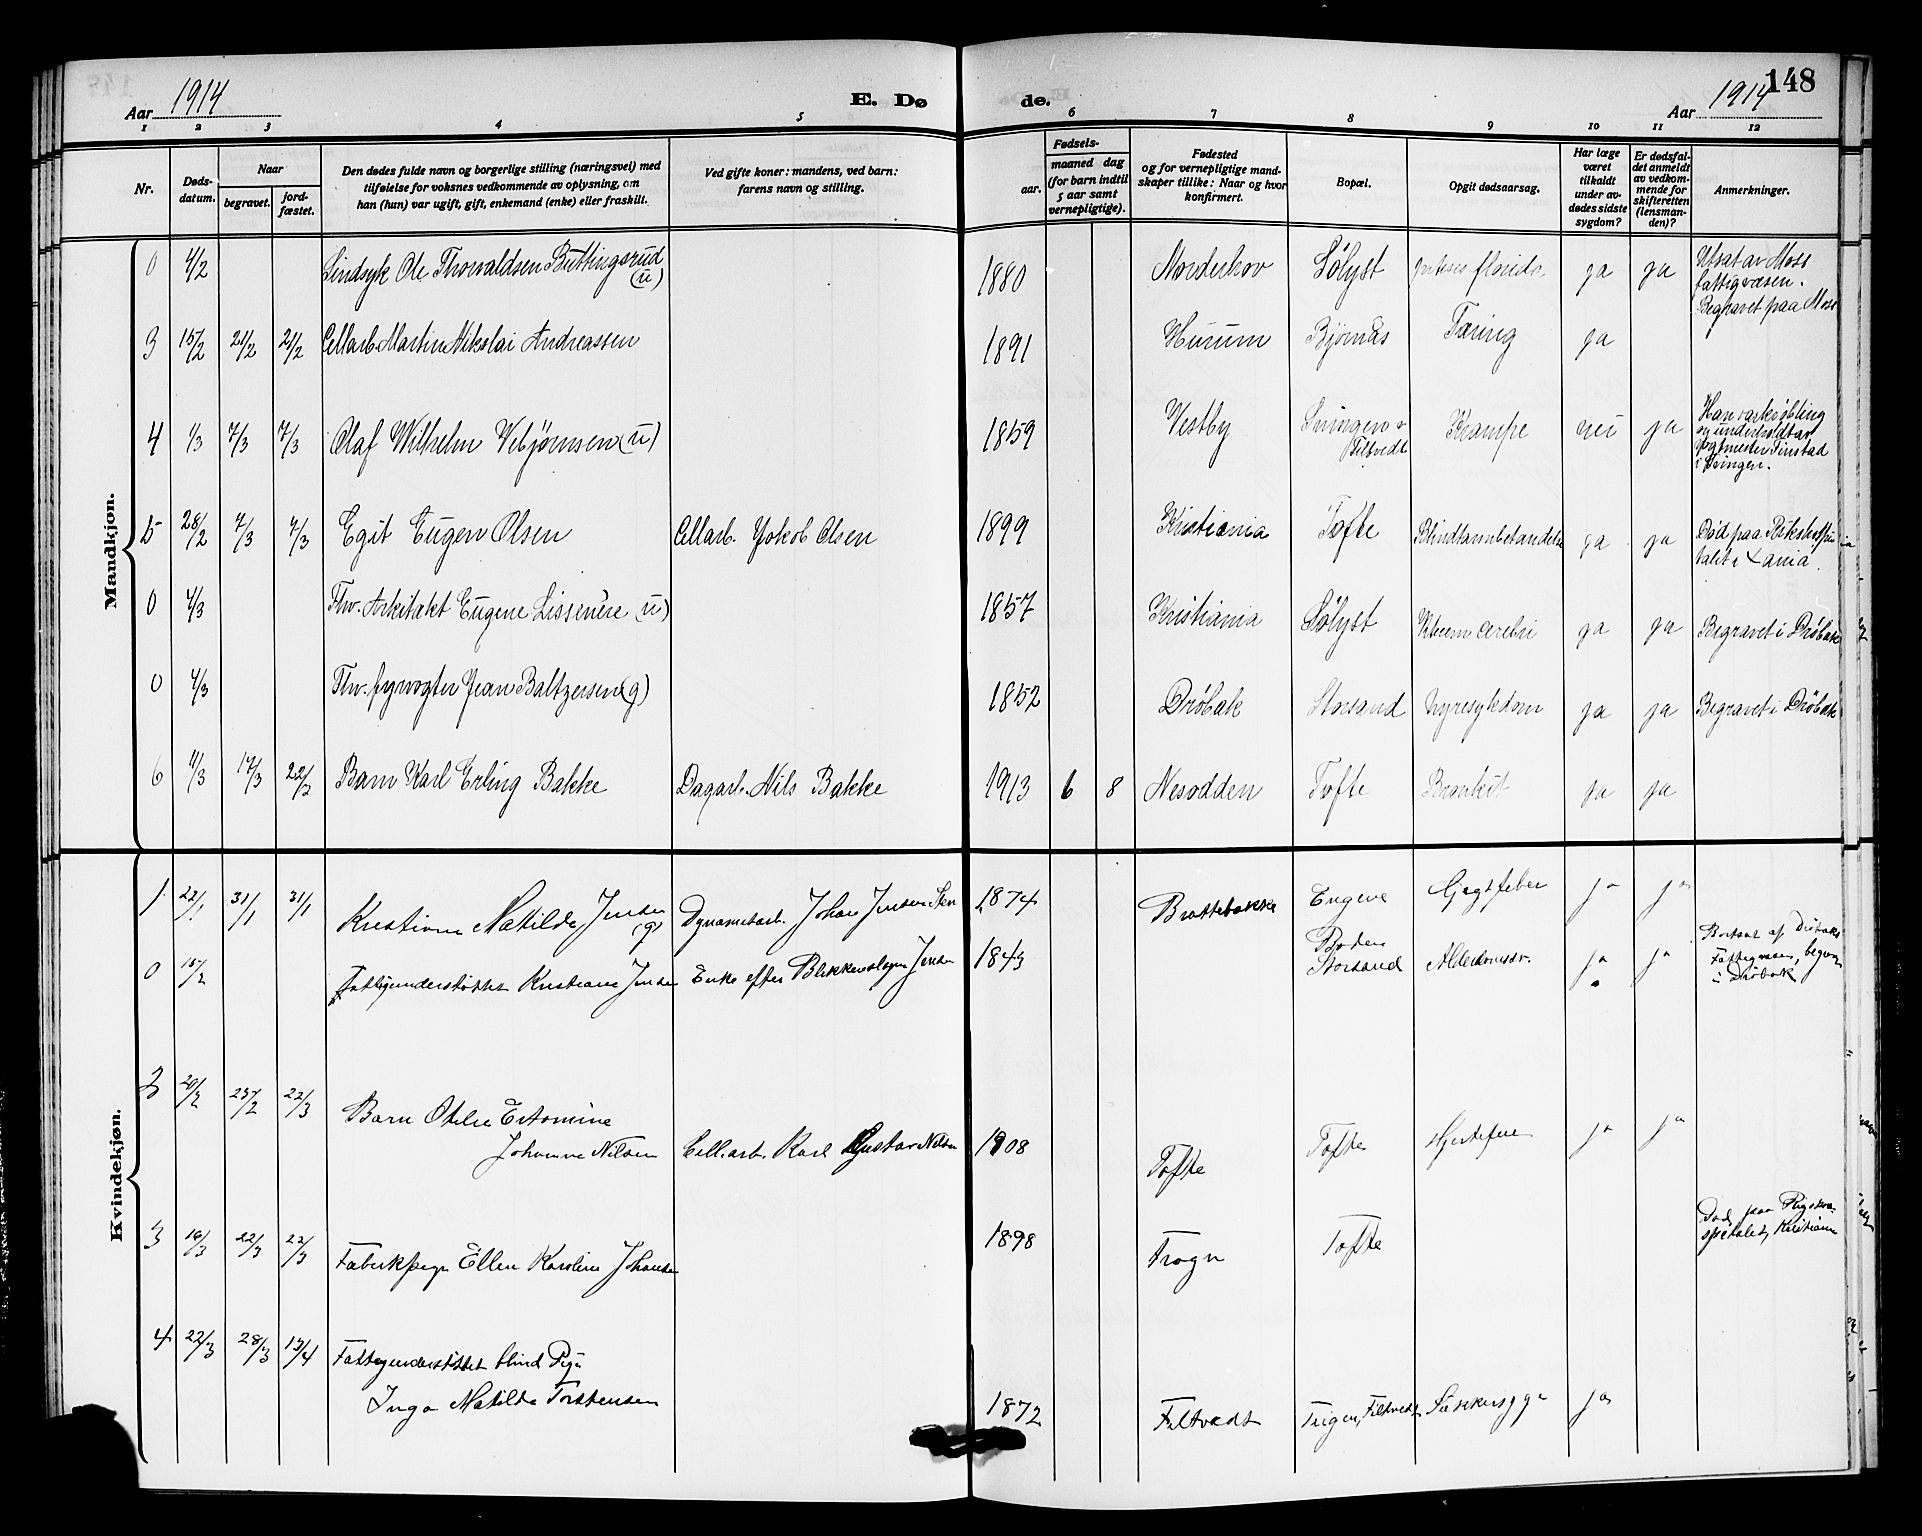 Aar 1914
E. Dø
de.
Aar 1914
148
1 2 3 4 5 6 7 8 9 10 11 12
Nr.
Døds-
datum.
Naar
begravet.
jord-
fæstet.
Den dødes fulde navn og borgerlige stilling (næringsvei) med
tilføielse for voksnes vedkommende av oplysning, om
han (hun) var ugift, gift, enkemand (enke) eller fraskilt.
Ved gifte koner: mandens, ved barn:
farens navn og stilling.
Fødsels-
aar.
maaned dag
(for barn indtil
5 aar samt
vernepligtige).
Fødested
og for vernepligtige mand-
skaper tillike: Naar og hvor
konfirmert.
Bopæl.
Opgit dødsaarsag.
Har læge
været
tilkaldt
under av-
dødes sidste
sygdom?
Er dødsfal-
det anmeldt
av vedkom-
mende for
skifteretten
(lensman-
den)?
Anmerkninger.
Mandkjøn.
0 4/2 Sindsyk Ole Thorvaldsen Buttingsrud (u) 1880 Norderhov Sølyst florida ja ja Utsat av Moss
fattigvæsen.
Begravet paa Moss
3 15/2 21/2 21/2 Cellarb. Martin Nikolai Andreassen 1891 Hurum Bjørnås Tæring ja
4 1/3 7/3 7/3 Olaf Wilhelm Vebjørnsen (u) 1859 Vestby Filtvedt Krampe nei ja Han var
og underholdt av
i
5 28/2 7/3 7/3 Egit Eugen Olsen Cellarb. Jakob Olsen 1899 Kristiania Tofte Blindtarmbetændelse ja ja Død paa Rikshospi
talet i Xania.
0 4/3 Fhv. Arkitekt Eugene (u) 1857 Kristiania Sølyst cerebri ja ja Begravet i Drøbak
0 4/3 Fhv. fyrvogter Jean Baltzersen (g) 1852 Drøbak Storsand Nyresykdom ja ja Begravet i Drøbak
6 11/3 17/3 22/3 Barn Karl Erling Bakke Dagarb. Nils Bakke 1913 6 8 Nesodden Tofte Bronkit ja ja
Kvindekjøn.
1 22/1 31/1 31/1 Kristiane Matilde Jensen (g) Dynamitarb. Johan Jensen 1874 Brattebakke Engene Gigtfeber ja ja
0 15/2 Fattigunderstøttet Kristiane Jensen Enke efter Blikkenslager Jensen 1843 Storsand Alderdomssv. ja ja Bortsat af Drøbaks
Fattigvæsen, begrav
i Drøbak
2 20/2 25/2 22/3 Barn Otelie
Johanne Nilsen Cell.arb. Karl Gustav Nilsen 1908 Tofte Tofte Hjertefeil ja ja
3 16/3 22/3 22/3 Fabrikpige Ellen Karoline Johansen 1898 Frogn Tofte Død paa Rigsho-
spitalet, Kristiania
4 22/3 28/3 13/4 Fattigunderstøttet blind Pige
Inga Matilde Torstensen 1872 Filtvedt Filtvedt Sukkersyge ja